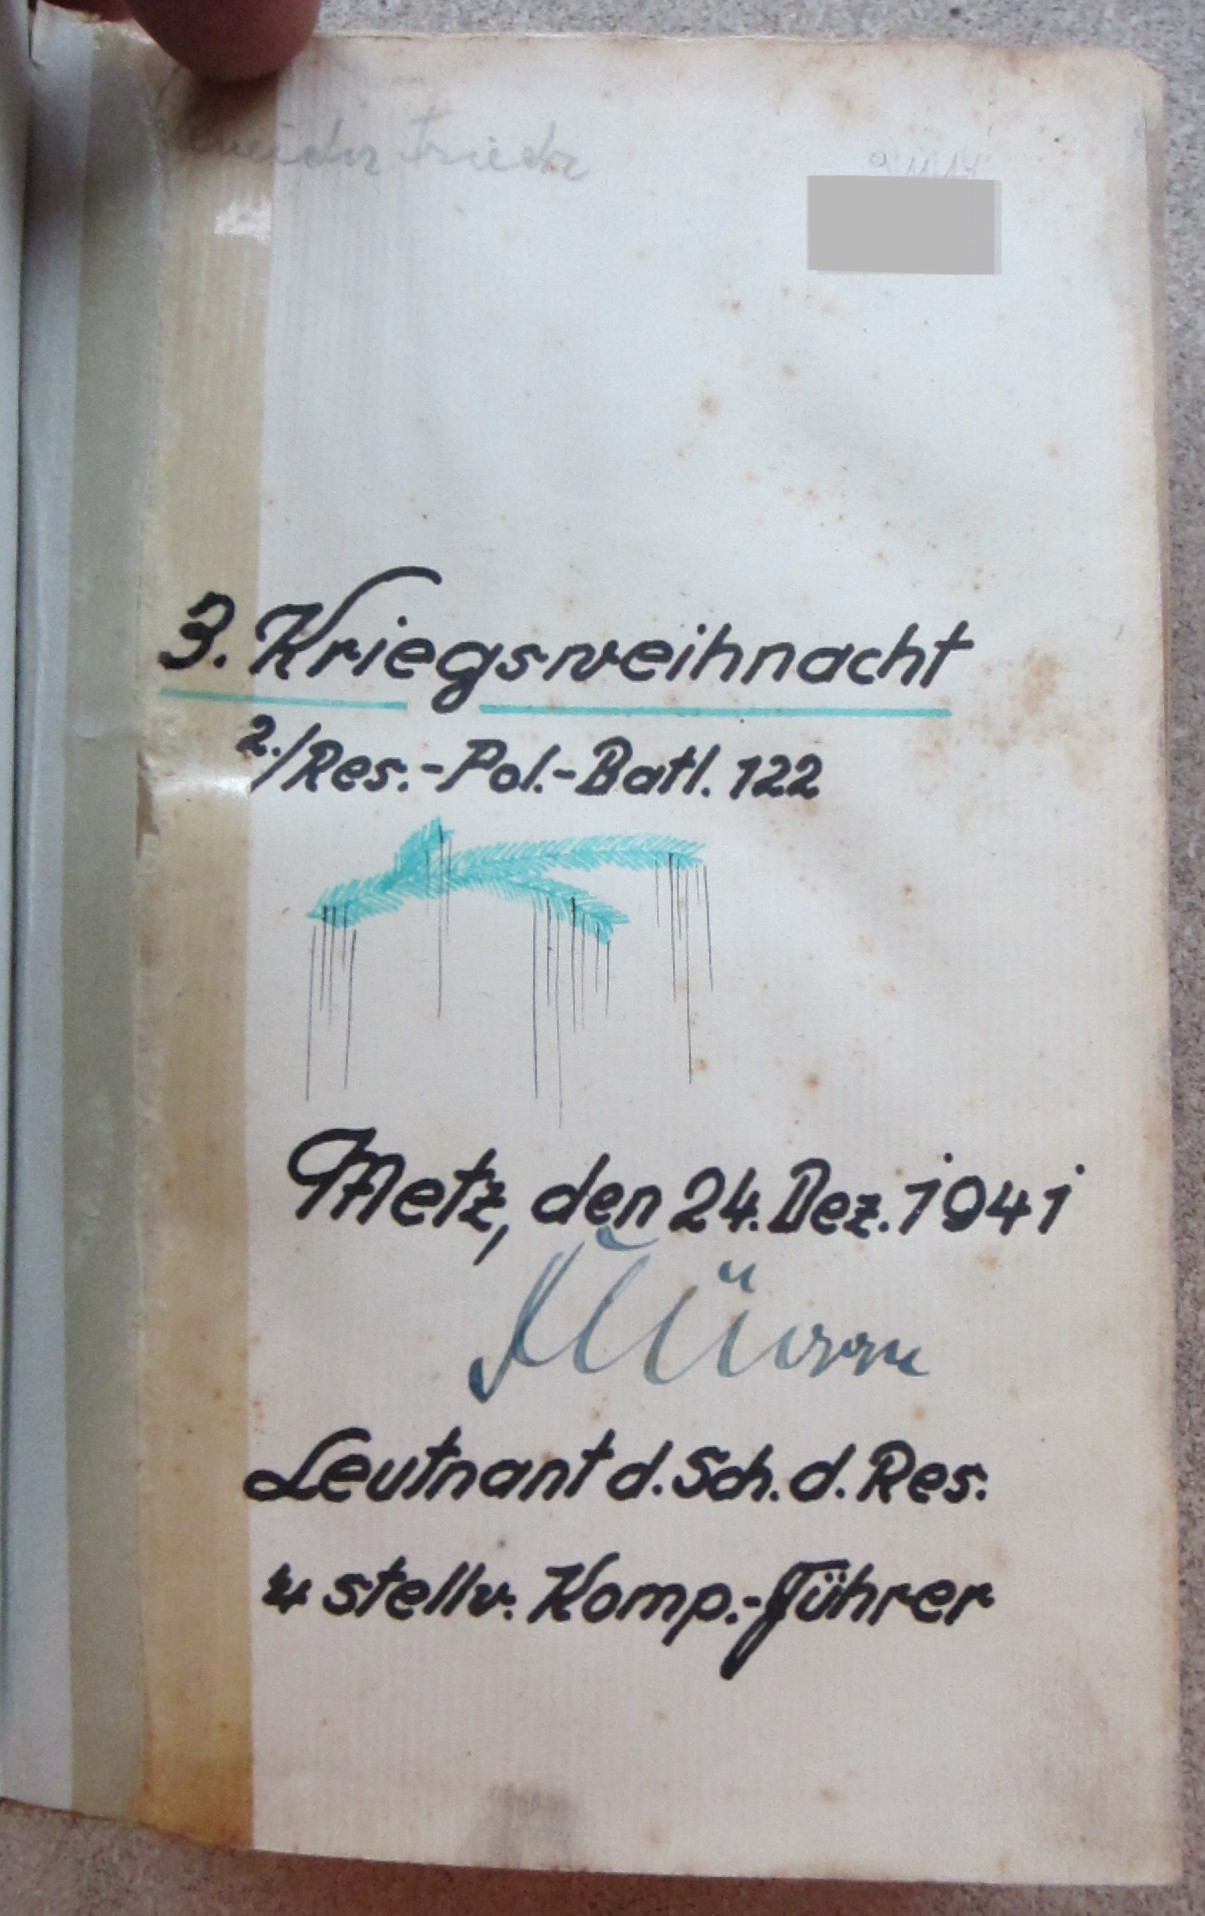 3. Kriegsweihnacht
2./Res.-Pol.-Batl. 122
Metz, den 24. Dez. 1941
Leutnant d. Sch. d. Res.
u stellv. Komp.-Führer